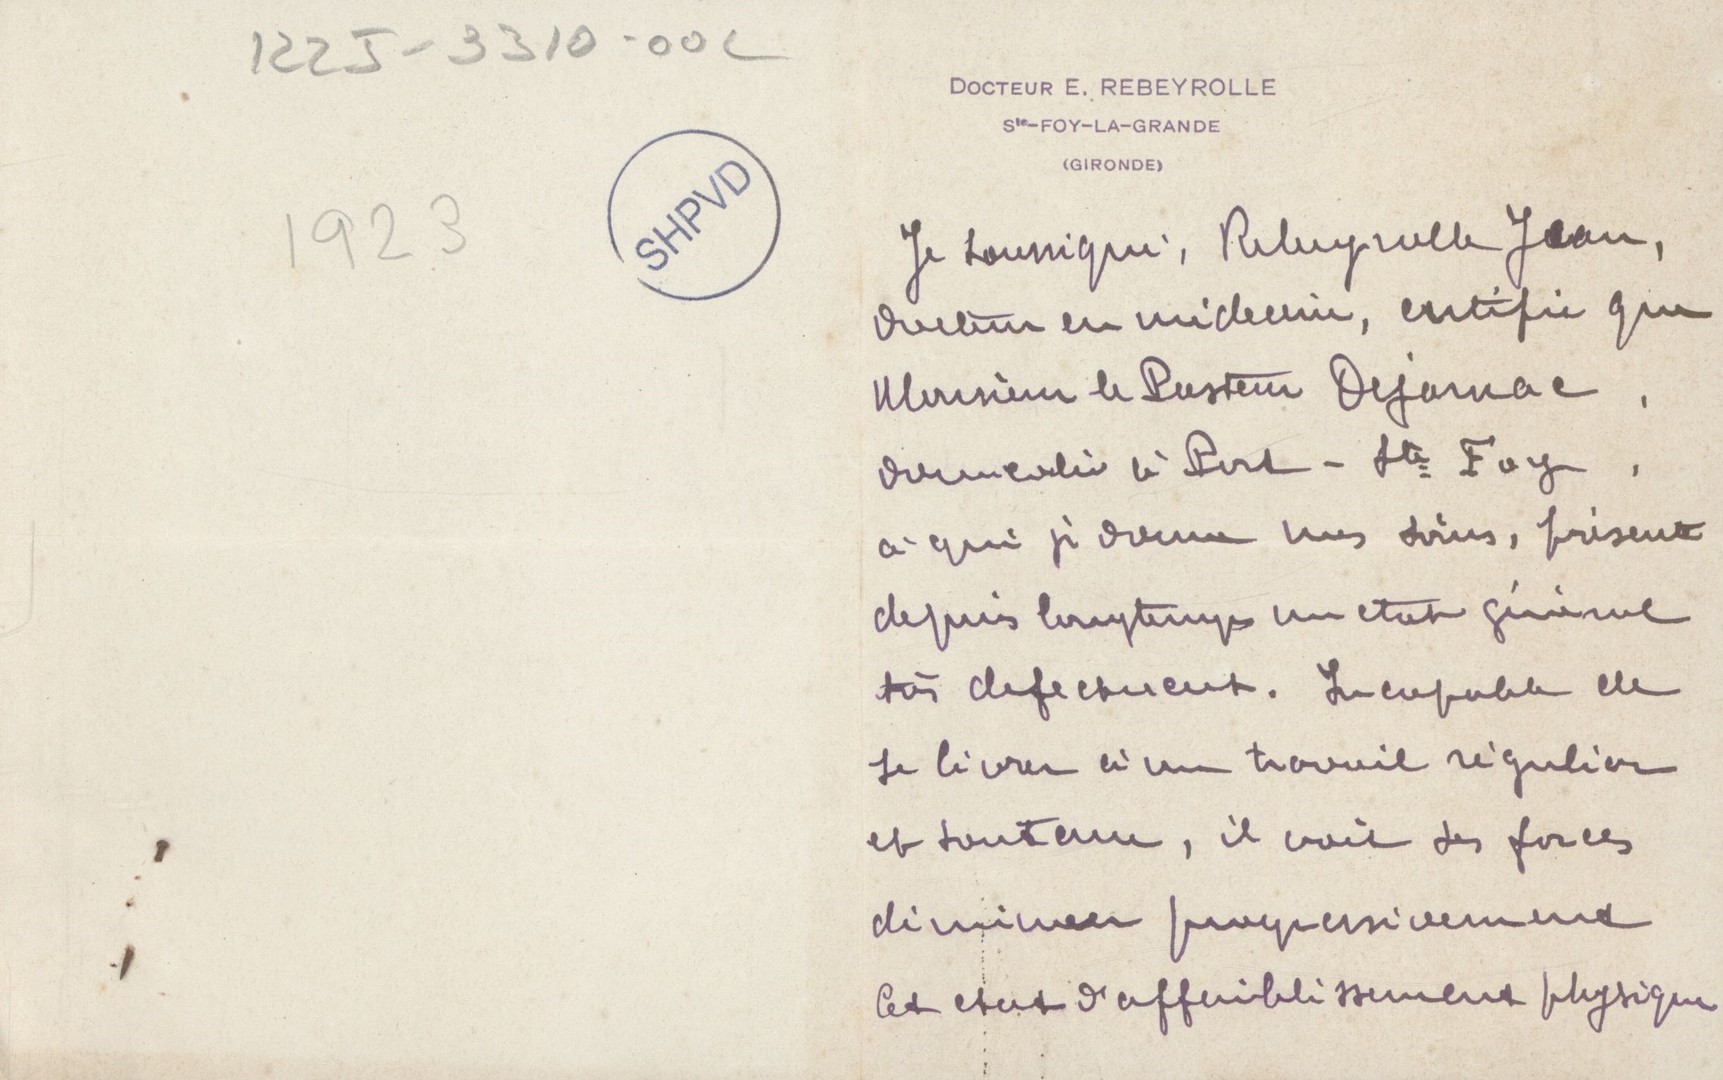 122J-3310-002
1923
SHPVD
DOCTEUR E. REBEYROLLE
Ste-FOY-LA-GRANDE
(GIRONDE)
Je soussigné, Rebeyrolle Jean,
docteur en médecine, certifie que
Monsieur le Pasteur Dejarnac,
domicilié à Port-Ste Foy,
à qui je donne mes soins, présente
depuis longtemps un etat général
très defectueux. Incapable de
se livrer à un travail régulier
et soutenu, il voit ses forces
diminuer progressivement
Cet etat d'affaiblissement physique